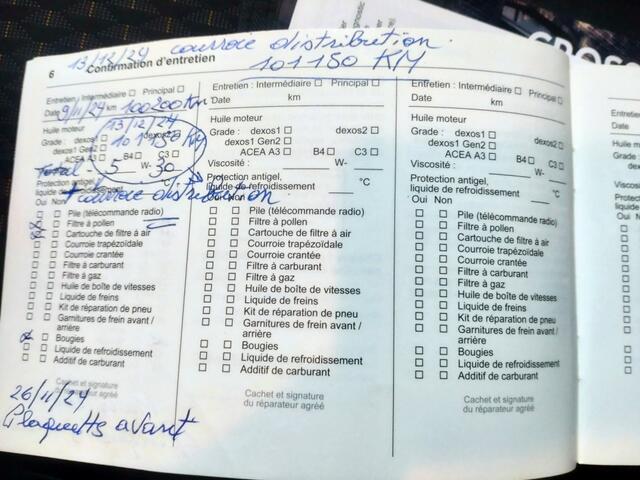 13/12/24 courroie distribution
101150 KM
6 Confirmation d'entretien
Entretien : Intermédiaire ☐ Principal ☐
9/11/24 km 100200 Km
Date
13/12/24
101150 KM
Huile moteur
Grade : dexos1 ☐ dexos2 ☐
dexos1 Gen2 ☐
ACEA A3 ☐ B4 ☐ C3 ☐
Total 5 W- 30
Protection antigel,
+ courroie distribution
Oui Non
☐ ☐ Pile (télécommande radio)
☐ ☐ Filtre à pollen
☐ ☐ Cartouche de filtre à air
☐ ☐ Courroie trapézoïdale
☐ ☐ Courroie crantée
☐ ☐ Filtre à carburant
☐ ☐ Filtre à gaz
☐ ☐ Huile de boîte de vitesses
☐ ☐ Liquide de freins
☐ ☐ Kit de réparation de pneu
☐ ☐ Garnitures de frein avant /
arrière
☐ ☐ Bougies
☐ ☐ Liquide de refroidissement
☐ ☐ Additif de carburant
Cachet et signature
du réparateur agréé
26/11/24
Plaquetts avant
Entretien : Intermédiaire ☐ Principal ☐
Date km
Huile moteur
Grade : dexos1 ☐ dexos2 ☐
dexos1 Gen2 ☐
ACEA A3 ☐ B4 ☐ C3 ☐
Viscosité : W-
Protection antigel,
liquide de refroidissement °C
Oui Non
☐ ☐ Pile (télécommande radio)
☐ ☐ Filtre à pollen
☐ ☐ Cartouche de filtre à air
☐ ☐ Courroie trapézoïdale
☐ ☐ Courroie crantée
☐ ☐ Filtre à carburant
☐ ☐ Filtre à gaz
☐ ☐ Huile de boîte de vitesses
☐ ☐ Liquide de freins
☐ ☐ Kit de réparation de pneu
☐ ☐ Garnitures de frein avant /
arrière
☐ ☐ Bougies
☐ ☐ Liquide de refroidissement
☐ ☐ Additif de carburant
Cachet et signature
du réparateur agréé
Entretien : Intermédiaire ☐ Principal ☐
Date km
Huile moteur
Grade : dexos1 ☐ dexos2 ☐
dexos1 Gen2 ☐
ACEA A3 ☐ B4 ☐ C3 ☐
Viscosité : W-
Protection antigel,
liquide de refroidissement °C
Oui Non
☐ ☐ Pile (télécommande radio)
☐ ☐ Filtre à pollen
☐ ☐ Cartouche de filtre à air
☐ ☐ Courroie trapézoïdale
☐ ☐ Courroie crantée
☐ ☐ Filtre à carburant
☐ ☐ Filtre à gaz
☐ ☐ Huile de boîte de vitesses
☐ ☐ Liquide de freins
☐ ☐ Kit de réparation de pneu
☐ ☐ Garnitures de frein avant /
arrière
☐ ☐ Bougies
☐ ☐ Liquide de refroidissement
☐ ☐ Additif de carburant
Cachet et signature
du réparateur agréé